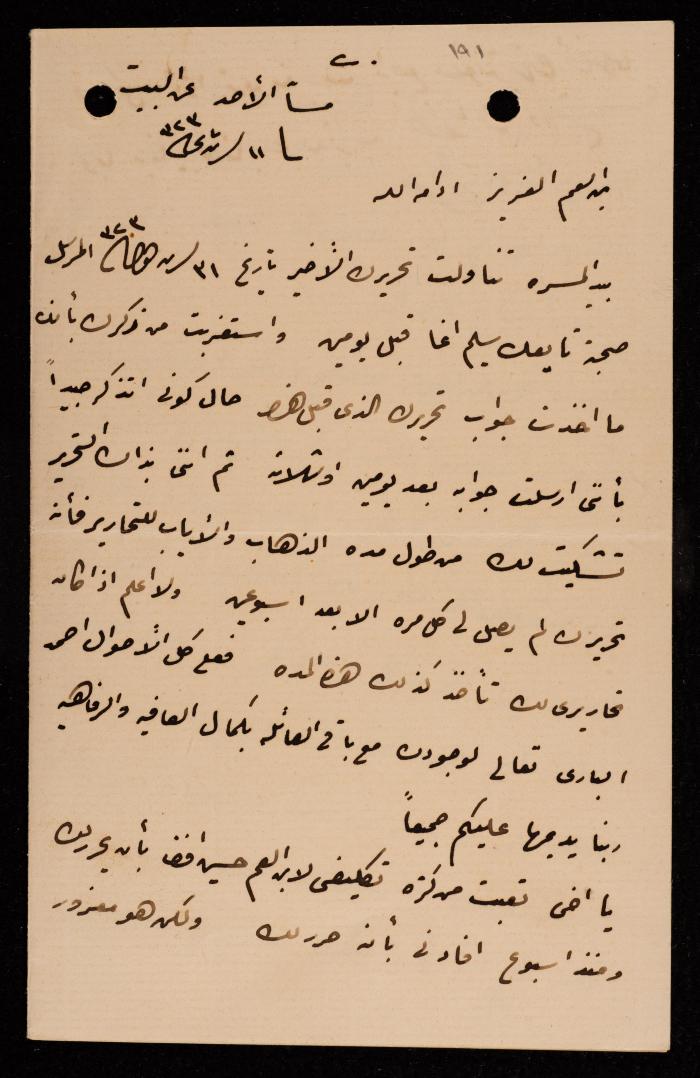 ١٩١
مساء الأحد عن البيت
١١ ٣٢٣
ابن العم العزيز ادامه الله
بيد المسره تناولت تحريرك الأخير تاريخ ٣١ ٣٢٣ المرسل
صحبة تابعك سليم اغا قبل يومين واستغربت من ذكرك بأنك
ما اخذت جواب تحريرك الذي قبل هذا حال كوني اتذكر جيداً
بأنني ارسلت جوابه بعد يومين او ثلاثة ثم انني بذاك التحرير
تشكيت لك من طول مده الذهاب والاياب للتحارير فأن
تحريرك لم يصل لي كل مره الا بعد اسبوعين ولا اعلم اذا كان
تحاريري لك تأخذ كذلك هذه المده فعلى كل الأحوال احمد
الباري تعالى لوجودك مع باقي العائله بكمال العافيه والرفاهيه
ربنا يديمها عليكم جميعاً
يا اخي تعبت من كثرة تكليفي لابن العم حسين افندي بأن يحرر لك
ومنذ اسبوع افادني بأنه حرر لك ولكن هو معذور